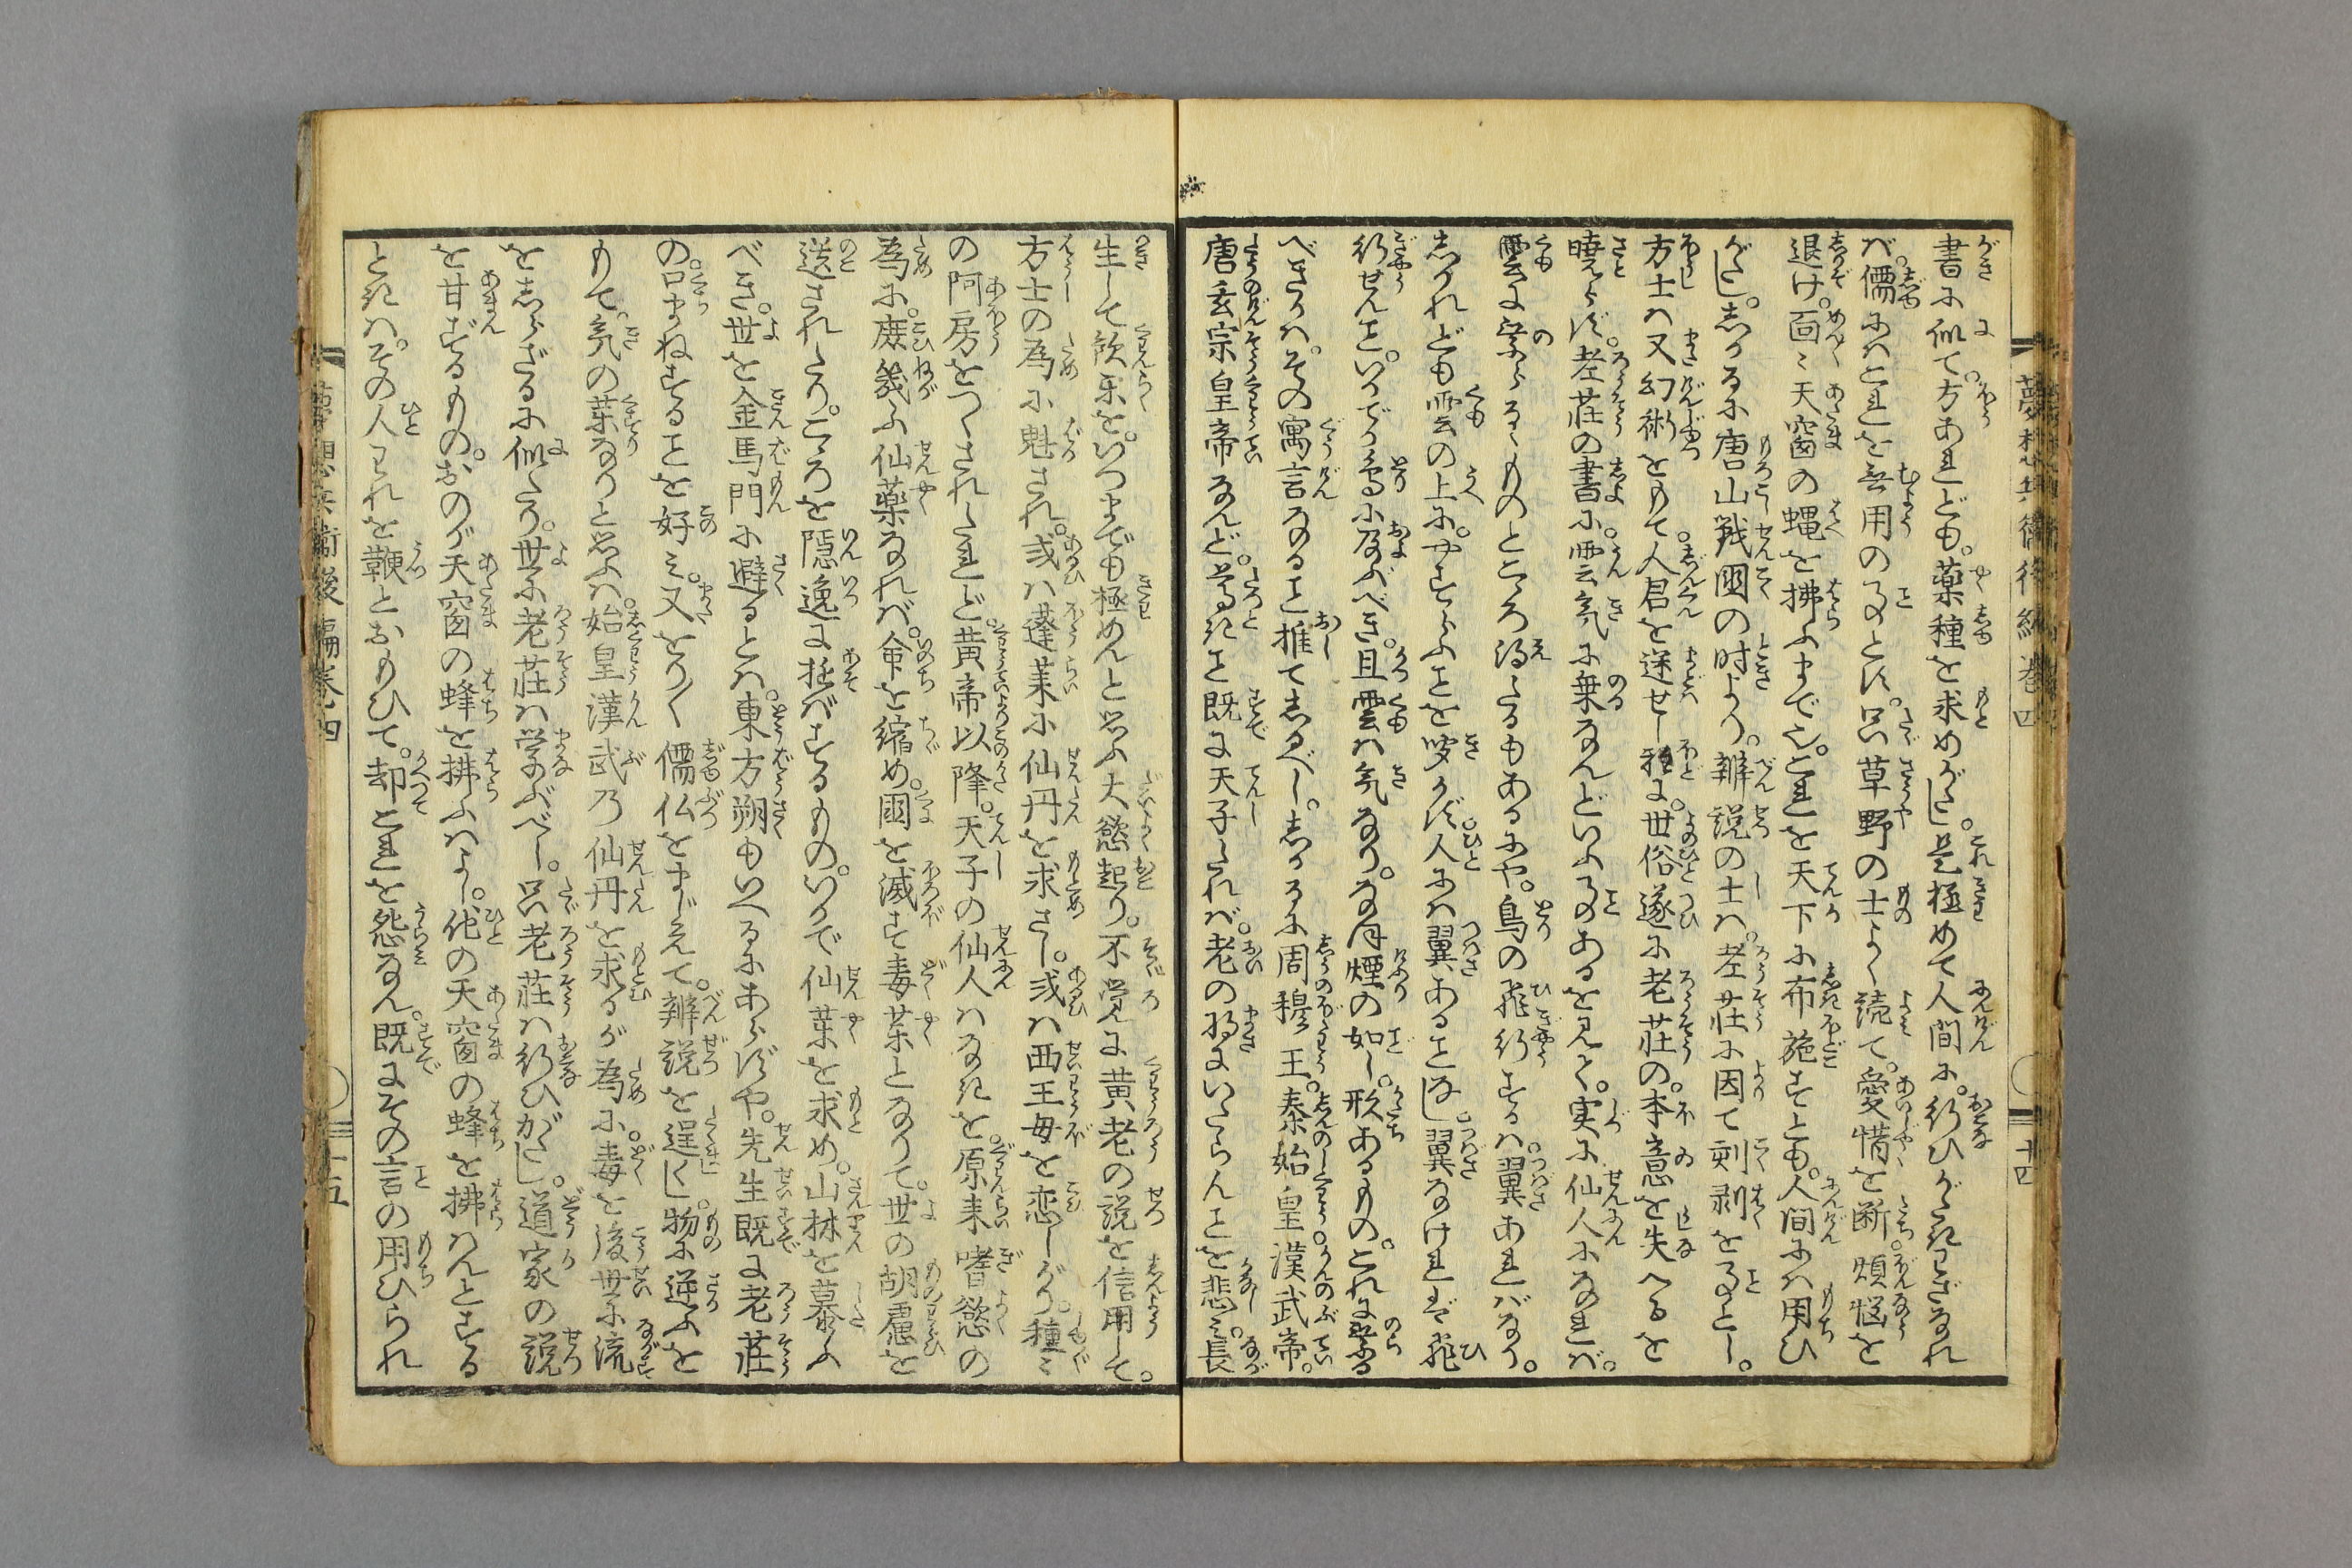 書に似て。方あれども。薬種を求めがたし。是極めて人間に。行ひがたきわざなれ
ば。儒にはこれを無用の事とす。只草野の士よく読て。愛惜を断。煩悩を
退け。面〻天窗の蠅を拂ふまで也。これを天下に布施すとも。人間には用ひ
がたし。しかるに唐山戦國の时より。辨説の士は。老荘に因て刻剥を事とし。
方士は又幻術をもて。人君を迷せし程に。世俗遂に老荘の。本意を失へるを
暁らず。老荘の書に。雲気に乗なんどいふ事のあるを見て。実に仙人になれば。
雲に乗らるゝものとこゝろ得たるもあるにや。鳥の飛行するは。翼あればなり。
しかれども雲の上に。やすらふことを聞かず。人には翼あることなし。翼なければ飛
行せんこと。いかでか鳥に及ぶべき。且雲は気なり。なほ煙の如し。形あるもの。これに乗る
べきかは。その寓言なること推てしるべし。しかるに周穆王。秦始皇。漢武帝。
唐玄宗皇帝なんど。尊きこと既に天子たれば。老の将にいたらんことを悲み。長
生して歓楽を。いつまでも極めんと思ふ大慾起り。不覚に黄老の説を信用して。
方士の為に魅され。或は蓬莱に仙丹を求さし。或は西王母を恋しがり。種〻
の阿房をつくされたれど。黄帝以降。天子の仙人はなきを。原来嗜慾の
為に。庶幾ふ仙薬なれば。命を縮め。國を滅す毒薬となりて。世の胡慮を
送されたり。こゝろを隠逸に遊ばするもの。いかで仙薬を求め。山林を慕ふ
べき。世を金馬門に避るとは。東方朔もいへるにあらずや。先生既に老荘
の口まねすることを好み。又をり〳〵儒仏をまじえて。辨説を逞くし。物に逆ふを
もて。気の薬なりと思ふは。始皇漢武乃仙丹を求るが為に。毒を後世に流
をしらざるに似たり。世に老荘は学ぶべし。只老荘は行ひがたし。道家の説
を甘ずるもの。おのが天窗の蜂を拂ふはよし。他の天窗の蜂を拂はんとする
ときは。その人われを鞭とおもひて。却これを怨なん。既にその言の用ひられ
夢想兵衛後編巻四
十四
夢想兵衛後編巻四
十五